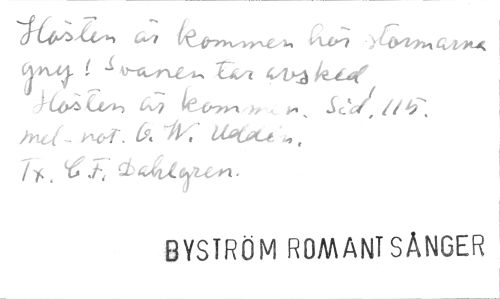 Hösten är kommen hör stormarna
gny! Svanen tar avsked!
Hösten är kommen. Sid. 115.
mel-not. C. W. Uddén.
Tx. C. F. Dahlgren.
BYSTRÖM ROMANT SÅNGER